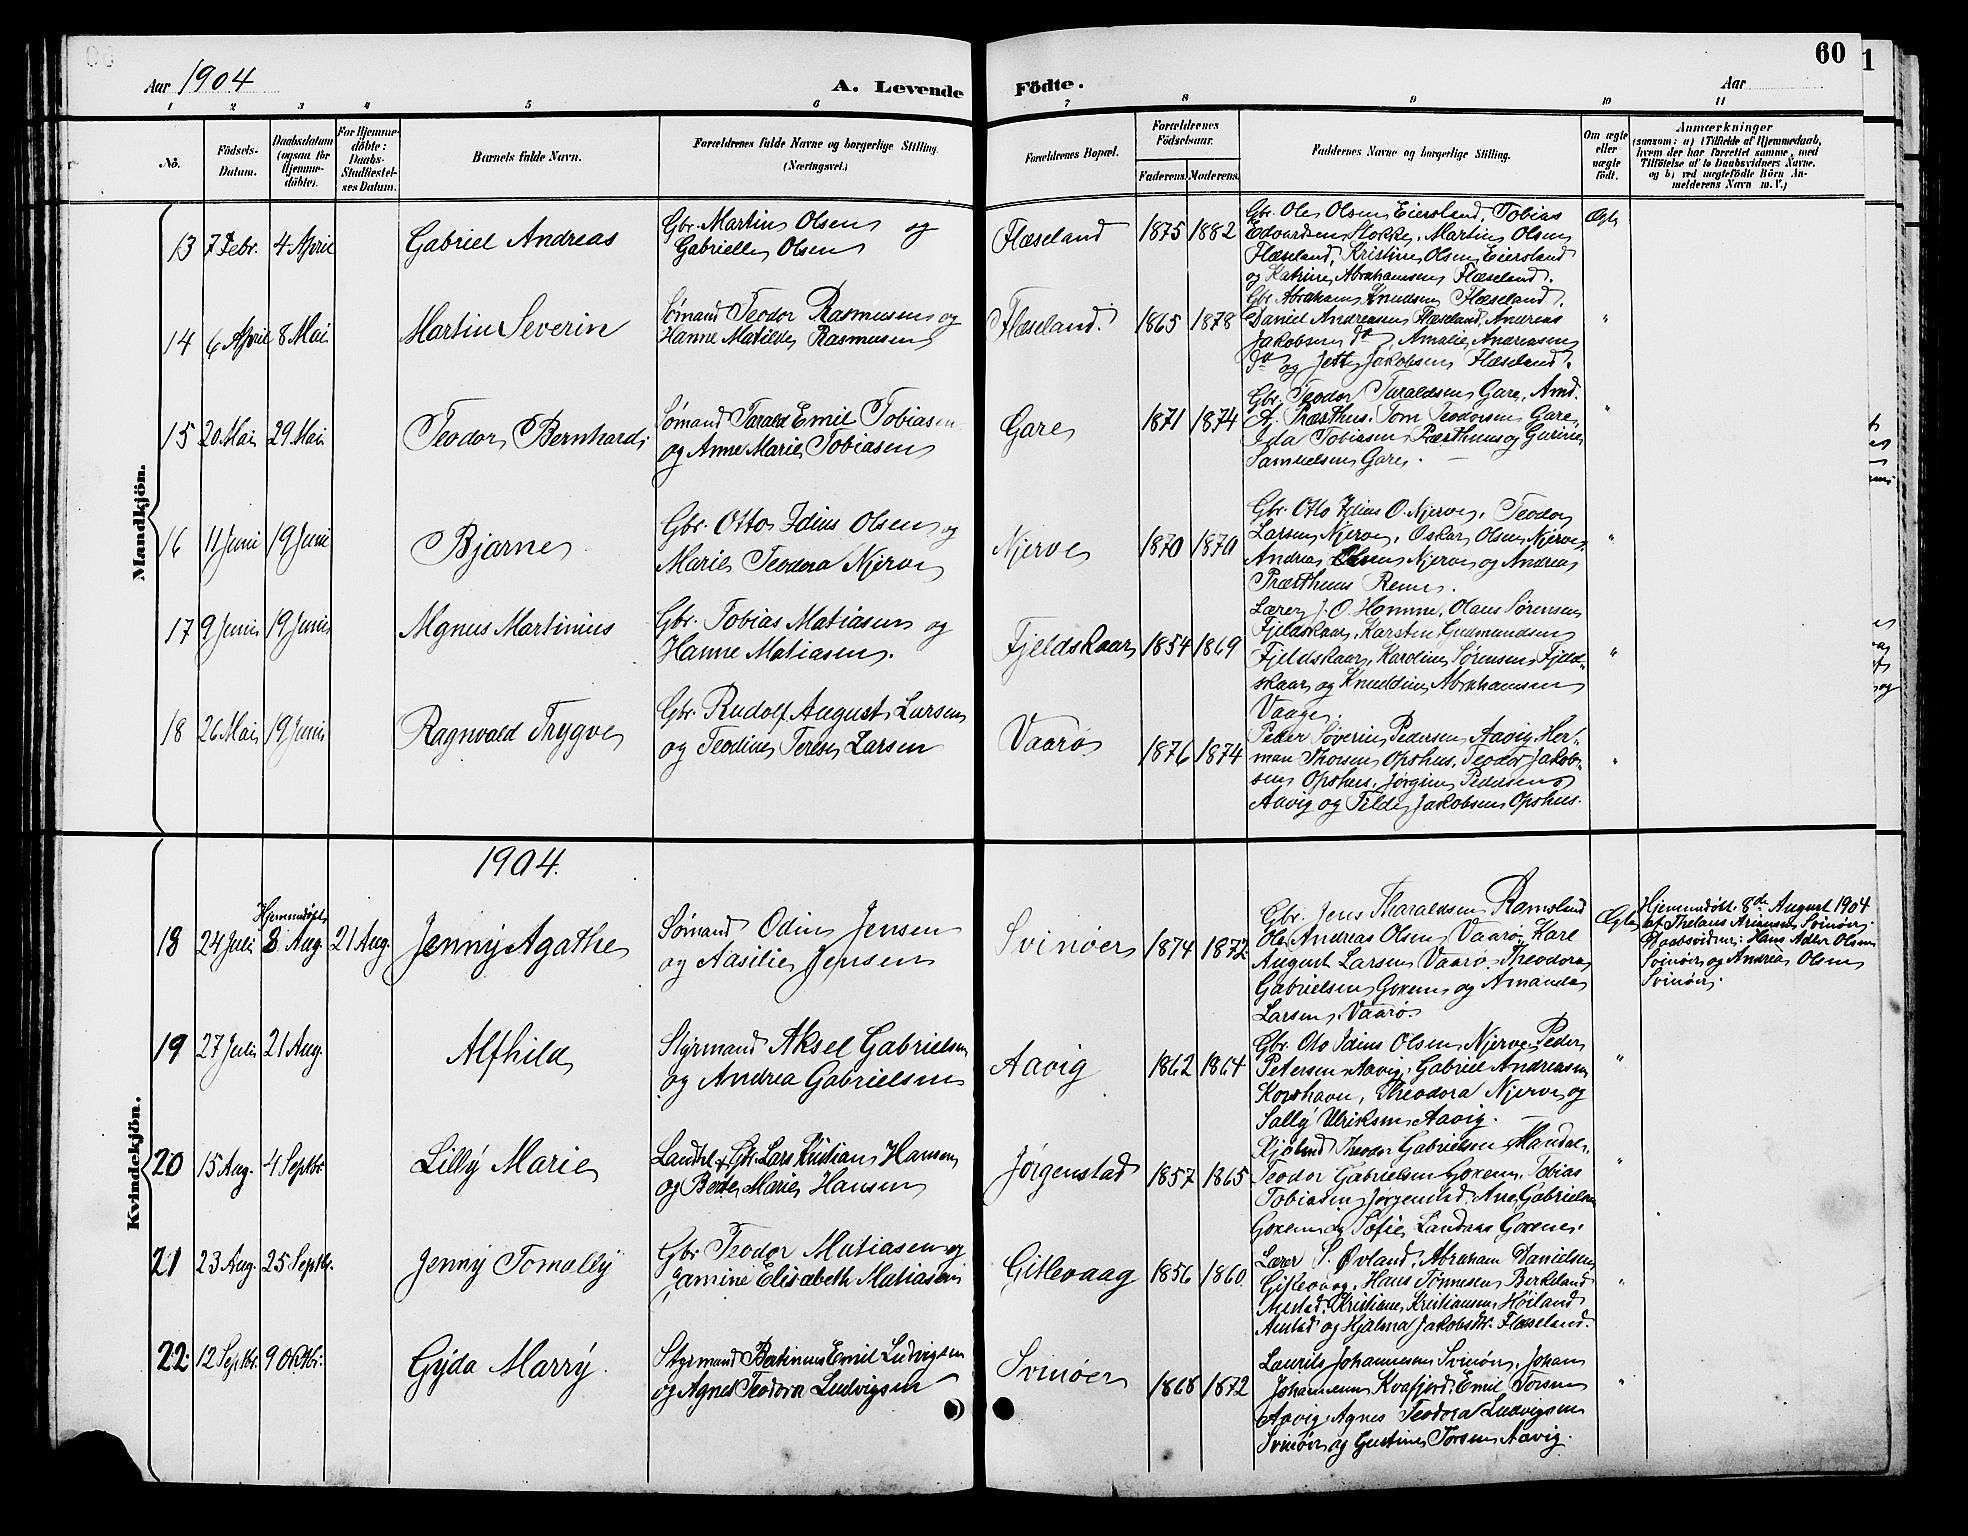 Aar 1904
A. Levende Födte.
60
Aar
1 2 3 4 5 6 7 8 9 10 11
No.
Födsels-
Datum.
Daabsdatum
(ogsaa for
Hjemme-
döbte).
For Hjemme-
döbte:
Daabs-
Stadfæstel-
ses Datum.
Barnets fulde Navn.
Forældrenes fulde Navne og borgerlige Stilling
(Næringsvei.)
Forældrenes Bopæl.
Forældrenes
Födselsaar.
Faderens. Moderens.
Faddernes Navne og borgerlige Stilling.
Om ægte
eller
uægte
födt.
Anmærkninger
(saasom: a) i Tilfælde af Hjemmedaab,
hvem der har forrettet samme, med
Tilföielse af to Daabsvidners Navne.
og b) ved uægtefödte Börn An-
melderens Navn m. V.)
Mandkjön.
13 7 Febr. 4 April
Gabriel Andreas
Gbr. Martin Olsen og
Gabrielle Olsen
Flæseland
1875 1882
Gbr. Ole Olsen Eiersland, Tobias
Edvardsen Stokke, Martin Olsen
Flæseland, Kristine Olsen Eiersland
og Katrine Abrahamsen Flæseland.
Ægte
14 6 April 8 Mai
Martin Severin
Sømand Teodor Rasmussen og
Hanne Matilde Rasmussen
Flæseland.
1865 1878
Gbr. Abraham Knudsen Flæseland.
Daniel Andreasen Flæseland, Andreas
Jakobsen do, Amalie Andreasen
do og Jette Jakobsen Flæseland.
"
15 20 Mai 29 Mai
Teodor Bernhard
Sømand Tarald Emil Tobiasen
og Anne Marie Tobiasen
Gare
1871 1874
Gbr. Teodor Taraldsen Gare, And.
A. Præsthus. Tom Teodorsen Gare,
Ida Tobiasen Præsthus og Gurine
Samuelsen Gare.
"
16 11 Juni 19 Juni
Bjarne
Gbr. Otto Idius Olsen og
Marie Teodora Njerve
Njerve
1870 1870
Gbr. Otto Idius O. Njerve, Teodor
Larsen Njerve, Oskar Olsen Njerve.
Andrea Olsen Njerve og Andrea
Præsthuus Reme.
"
17 9 Juni 19 Juni
Magnus Martinius
Gbr. Tobias Matiasen og
Hanne Matiasen.
Fjeldskaar
1854 1869
Lærer J. O. Homme, Olaus Sørensen
Fjeldskaar, Karsten Gudmundsen
Fjeldskaar, Karoline Sørensen Fjeld-
skaar og Knuddine Abrahamsen
Vaage.
"
18 26 Mai 19 Juni
Ragnvald Trygve
Gbr. Rudolf August Larsen
og Teodine Terese Larsen
Vaarø
1876 1874
Peder Severin Pedersen Aavig, Her-
man Thorsen Opshus, Teodor Jakob-
sen Opshus, Jørgine Pedersen
Aavig og Tilde Jakobsen Opshus.
"
1904.
Kvindekjön.
18 24 Juli Hjemmedøbt 8 Aug. 21 Aug.
Jenny Agathe
Sømand Odin Jensen
og Aasilie Jensen
Svinøer
1874 1872
Gbr. Jens Tharaldsen Ramsland
Ole Andreas Olsen Vaarø, Karl
August Larsen Vaarø. Theodora
Gabrielsen Goxem og Amanda
Larsen, Vaarø
Ægte
Hjemmedøbt 8de August 1904
af Thelaus Svinøer
Daabsvidner: Hans Adler Olsen
Svinøer og Andrea Olsen
Svinøer.
19 27 Juli 21 Aug.
Alfhild
Styrmand Aksel Gabrielsen
og Andrea Gabrielsen
Aavig
1862 1864
Gbr. Oto Idius Olsen Njerve, Peder
Petersen Aavig, Gabriel Andreasen
Korshavn, Theodora Njerve og
Sally Ulriksen Aavig.
"
20 15 Aug. 4 Septbr
Lilly Marie
Landhl. & Gbr. Lars Kristian Hansen
og Berte Marie Hansen
Jørgenstad
1857 1865
Theodor Gabrielsen Mandal,
Teodor Gabrielsen Goxem, Tobias
Tobiasen Jørgenstad, Ane Gabrielsen
Goxem og Sofie Landaas Goxem.
"
21 23 Aug. 25 Septbr.
Jenny Tomally
Gbr. Teodor Matiasen og
Jamine Elisabeth Matiasen
Gitlevaag
1856 1860.
Lærer S. Øvland, Abraham Danielsen
Gitlevaag, Hans Tønnesen Birkeland
Austad, Kristiane Kristiansen Høiland
Austad og Hjalma Jakobsdtr. Flæseland.
"
22 12 Septbr. 9 Oktbr.
Gyda Marry.
Styrmand Bertinius Emil Ludvigsen
og Agnes Teodora Ludvigsen
Svinøer
1868 1872
Laurits Johannesen Svinøer, Johan
Johannesen Kvafjord, Emil Torsen
Aavig, Agnes Teodora Ludvigsen
Svinøer og Gustine Torsen Aavig.
"